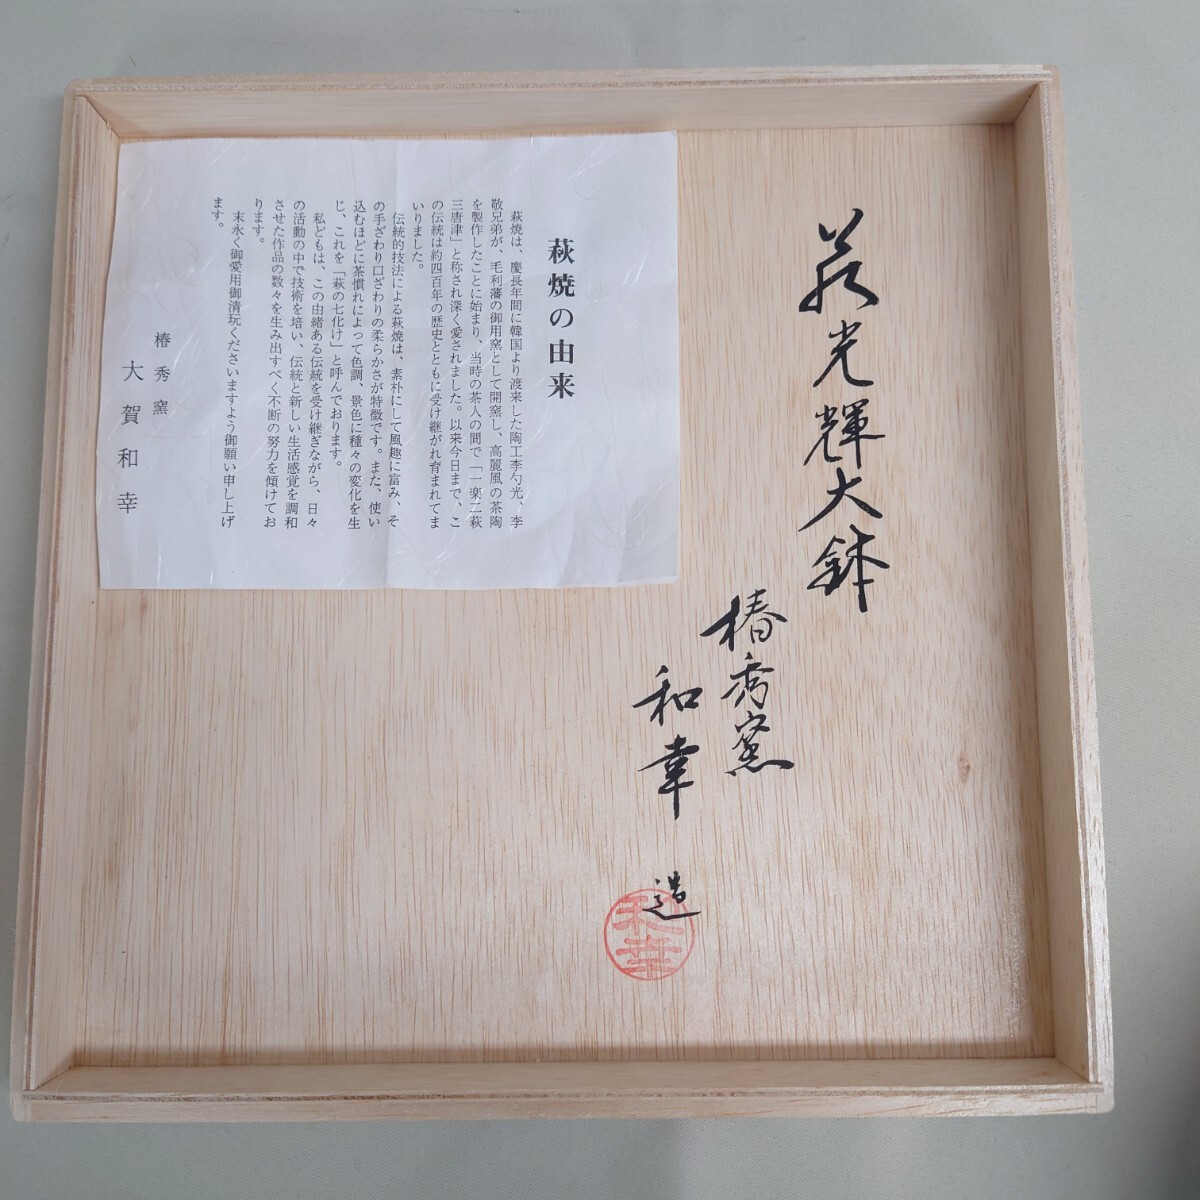 萩光輝大鉢
椿秀窯
和幸
造
和幸
萩焼の由来
萩焼は、慶長年間に韓国より渡来した陶工李勺光、李
敬兄弟が、毛利藩の御用窯として開窯し、高麗風の茶陶
を製作したことに始まり、当時の茶人の間で「一楽二萩
三唐津」と称され深く愛されました。以来今日まで、こ
の伝統は約四百年の歴史とともに受け継がれ育まれてま
いりました。
伝統的技法による萩焼は、素朴にして風趣に富み、そ
の手ざわり口ざわりの柔らかさが特徴です。また、使い
込むほどに茶慣れによって色調、景色に種々の変化を生
じ、これを「萩の七化け」と呼んでおります。
私どもは、この由緒ある伝統を受け継ぎながら、日々
の活動の中で技術を培い、伝統と新しい生活感覚を調和
させた作品の数々を生み出すべく不断の努力を傾けてお
ります。
末永く御愛用御清玩くださいますよう御願い申し上げ
ます。
椿秀窯
大賀和幸